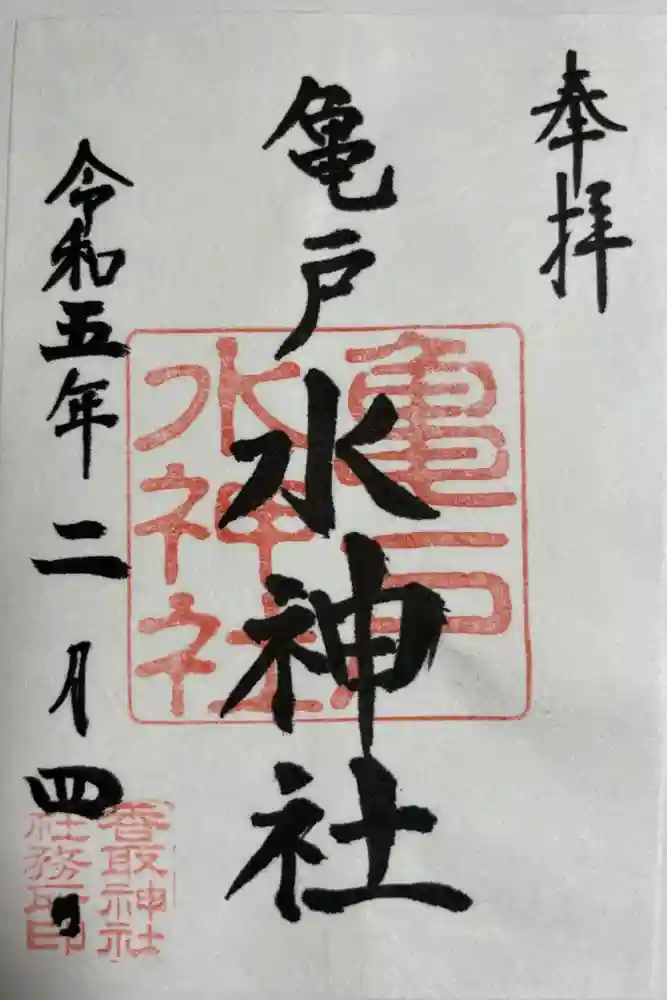 奉拝
亀戸水神社
亀戸
水神社
令和五年二月四日
香取神社
社務所印